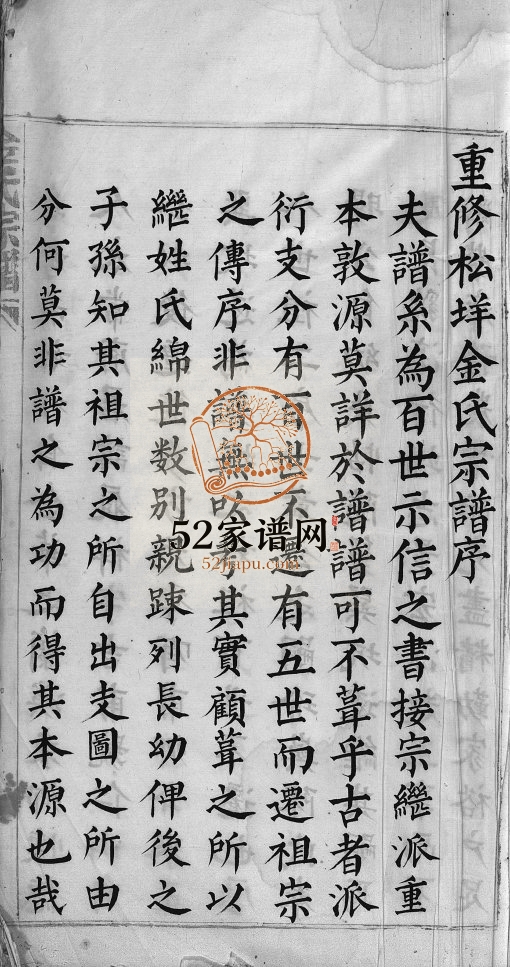 重修松垟金氏宗譜序
夫譜系為百世示信之書接宗繼派重
本敦源莫詳於譜譜可不葺乎古者派
衍支分有百世不遷有五世而遷祖宗
之傳序非譜無以考其實顧葺之所以
繼姓氏綿世数别親踈列長幼俾後之
子孫知其祖宗之所自出支圖之所由
分何莫非譜之為功而得其本源也哉
52家谱网
52jiapu.com